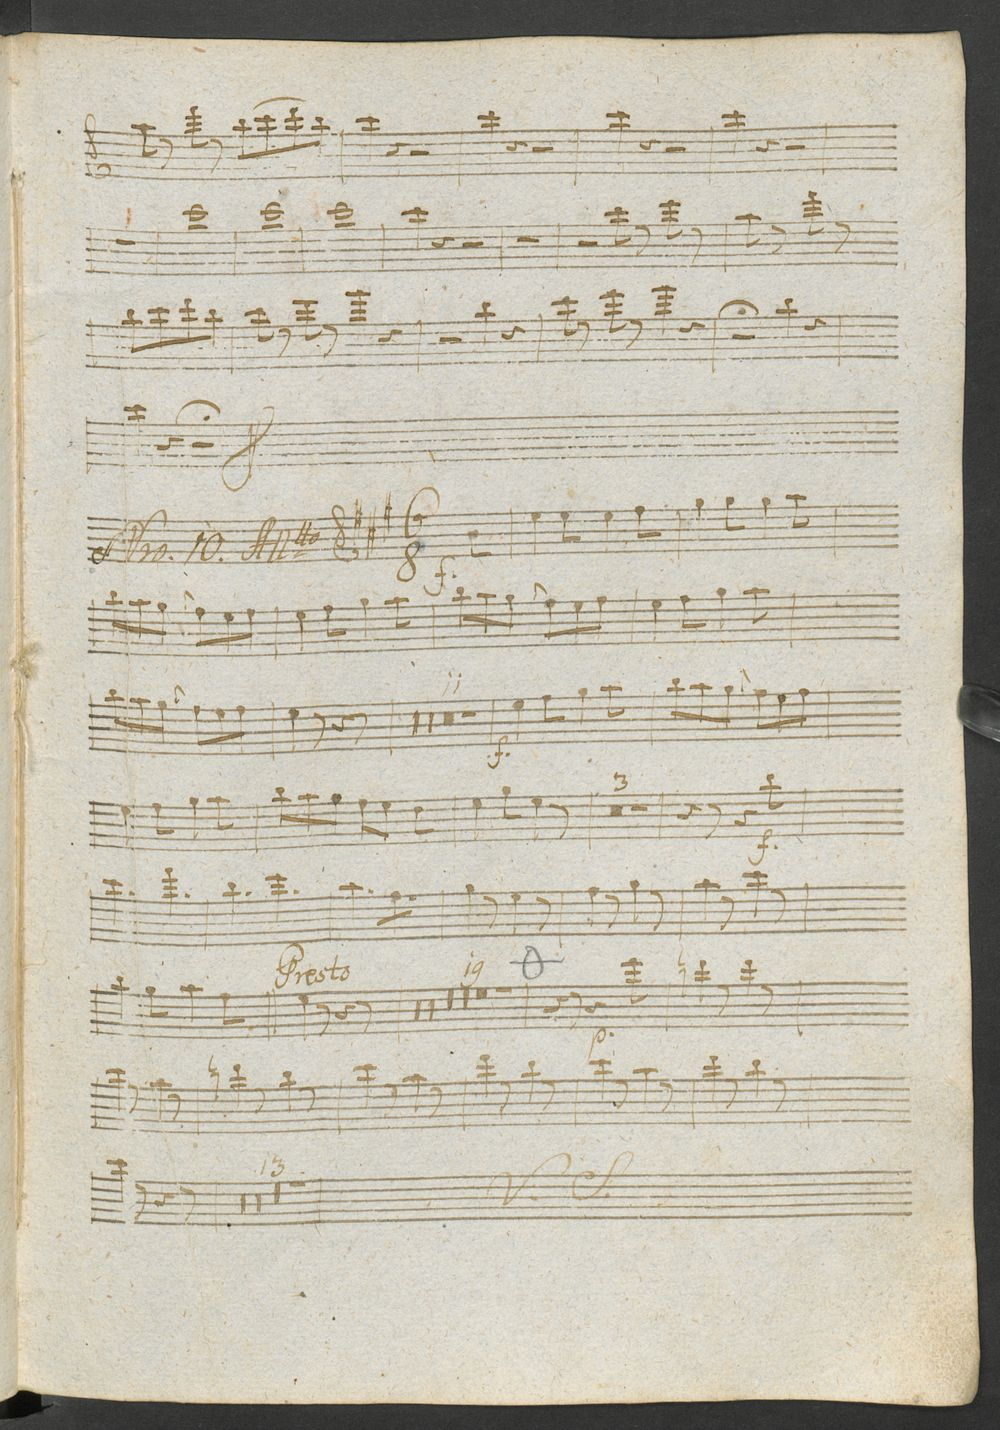 Nro. 10. Antto 6 8
f.
11
f.
3
f.
Presto 19
p.
13
V. S.